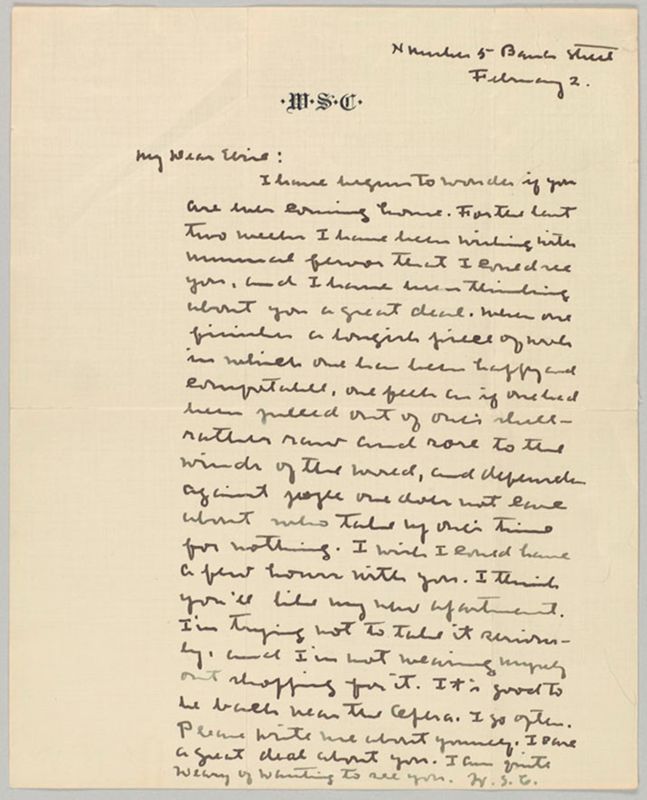 Number 5 Bank Street
February 2.
·W·S·C·
My Dear Elsie:
I have begun to wonder if you
are ever coming home. For the last
two weeks I have been wishing with
unusual fervor that I could see
you, and I have been thinking
about you a great deal. When one
finishes a longish piece of work
in which one has been happy and
comfortable, one feels as if one had
been pulled out of one's shell—
rather raw and sore to the
winds of the world, and defense
against people one does not care
about who take up one's time
for nothing. I wish I could have
a few hours with you. I think
you'll like my new apartment.
I'm trying not to take it serious-
ly, and I'm not wearing myself
out shopping for it. It is good to
be back near the Opera. I go often.
Please write me about yourself. I care
a great deal about you. I am quite
weary of wanting to see you. W.S.C.